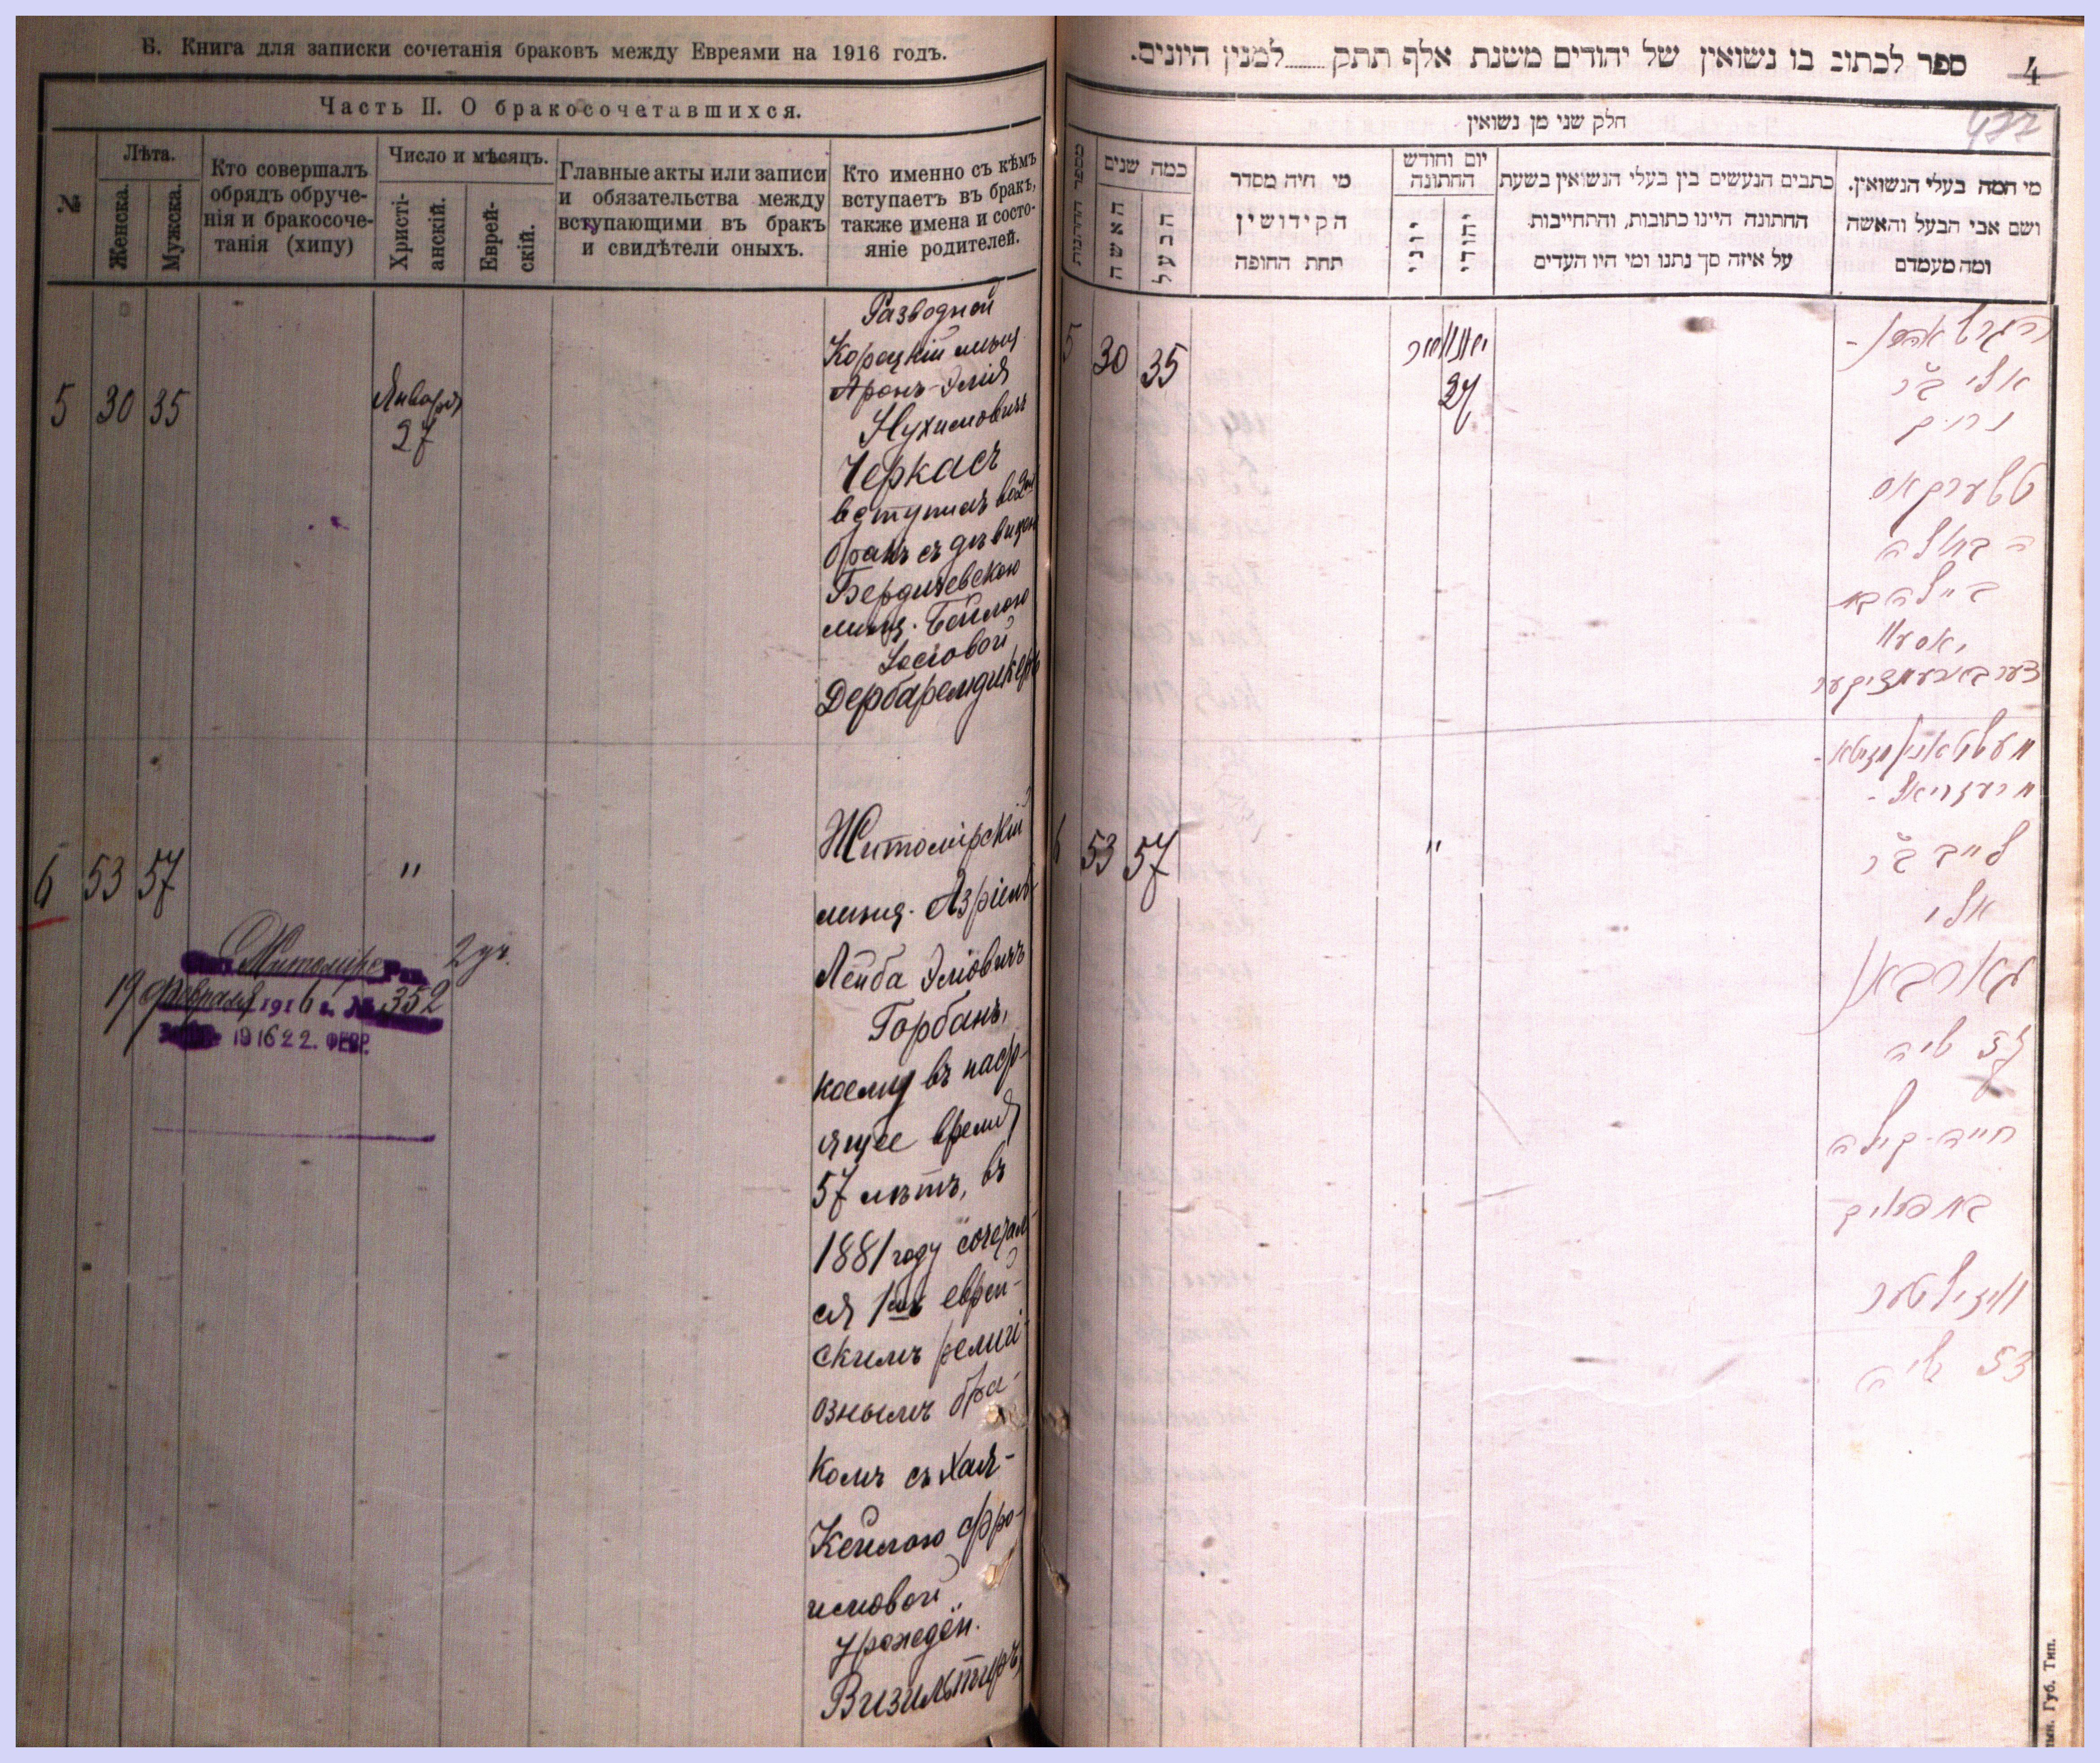 Б. Книга для записки сочетанія браковъ между Евреями на 1916 годъ.
Часть II. О бракосочетавшихся.
№
Лѣта.
Женска.
Мужска.
Кто совершалъ
обрядъ обруче-
нія и бракосоче-
танія (хипу)
Число и мѣсяцъ.
Христі-
анскій.
Еврей-
скій.
Главные акты или записи
и обязательства между
вступающими въ бракъ
и свидѣтели оныхъ.
Кто именно съ кѣмъ
вступаетъ въ бракъ,
также имена и состо-
яніе родителей.
5 30 35
Января
27
Разводной
Корецкій мѣщ
Аронъ-Элія
Нухимовичъ
Черкасъ
вступилъ во 2й
бракъ съ дѣвицею
Бердичевскою
мѣщ. Бейлою
Іосіовой
Дербаремдикеръ
6 53 57 "
Житомірскій
мѣщ. Азріель
Лейба Эліовичъ
Горбанъ,
коему въ наст-
ящее время
57 лѣтъ, въ
1881 году сочетал-
ся 1мъ еврей-
скимъ религі-
ознымъ бра-
комъ съ Хая-
Кейлою Фро-
имовой
урожден.
Визильтиръ
Житомір 2 уч.
19 Февраля 1916 г. № 352
1916 22. ФЕВР.
ספר לכתוב בו נשואין של יהודים משנת אלף תתק למנין היונים.
4
477
חלק שני מן נשואין
מספר החתנות
כמה שנים
האשה
הבעל
מי היה מסדר
הקידושין
תחת החופה
יום וחודש
החתונה
יוני
יהודי
כתבים הנעשים בין בעלי הנשואין בשעת
החתונה היינו כתובות, והתחייבות
על איזה סך נתנו ומי היו העדים
מי המה בעלי הנשואין.
ושם אבי הבעל והאשה
ומה מעמדם
5 30 35
יאנואר
27
הגרש אהרן-
אלי ב"ר
נחים
טשערקאס
הבתולה
ביילה בת
דערבארעמדיקער
6 53 57 "
לייב ב"ר
אלי
גארבאן
57 שנה
חיה-קיילה
בת אפרים
וויזילטער
53 שנה
Губ. Тип.